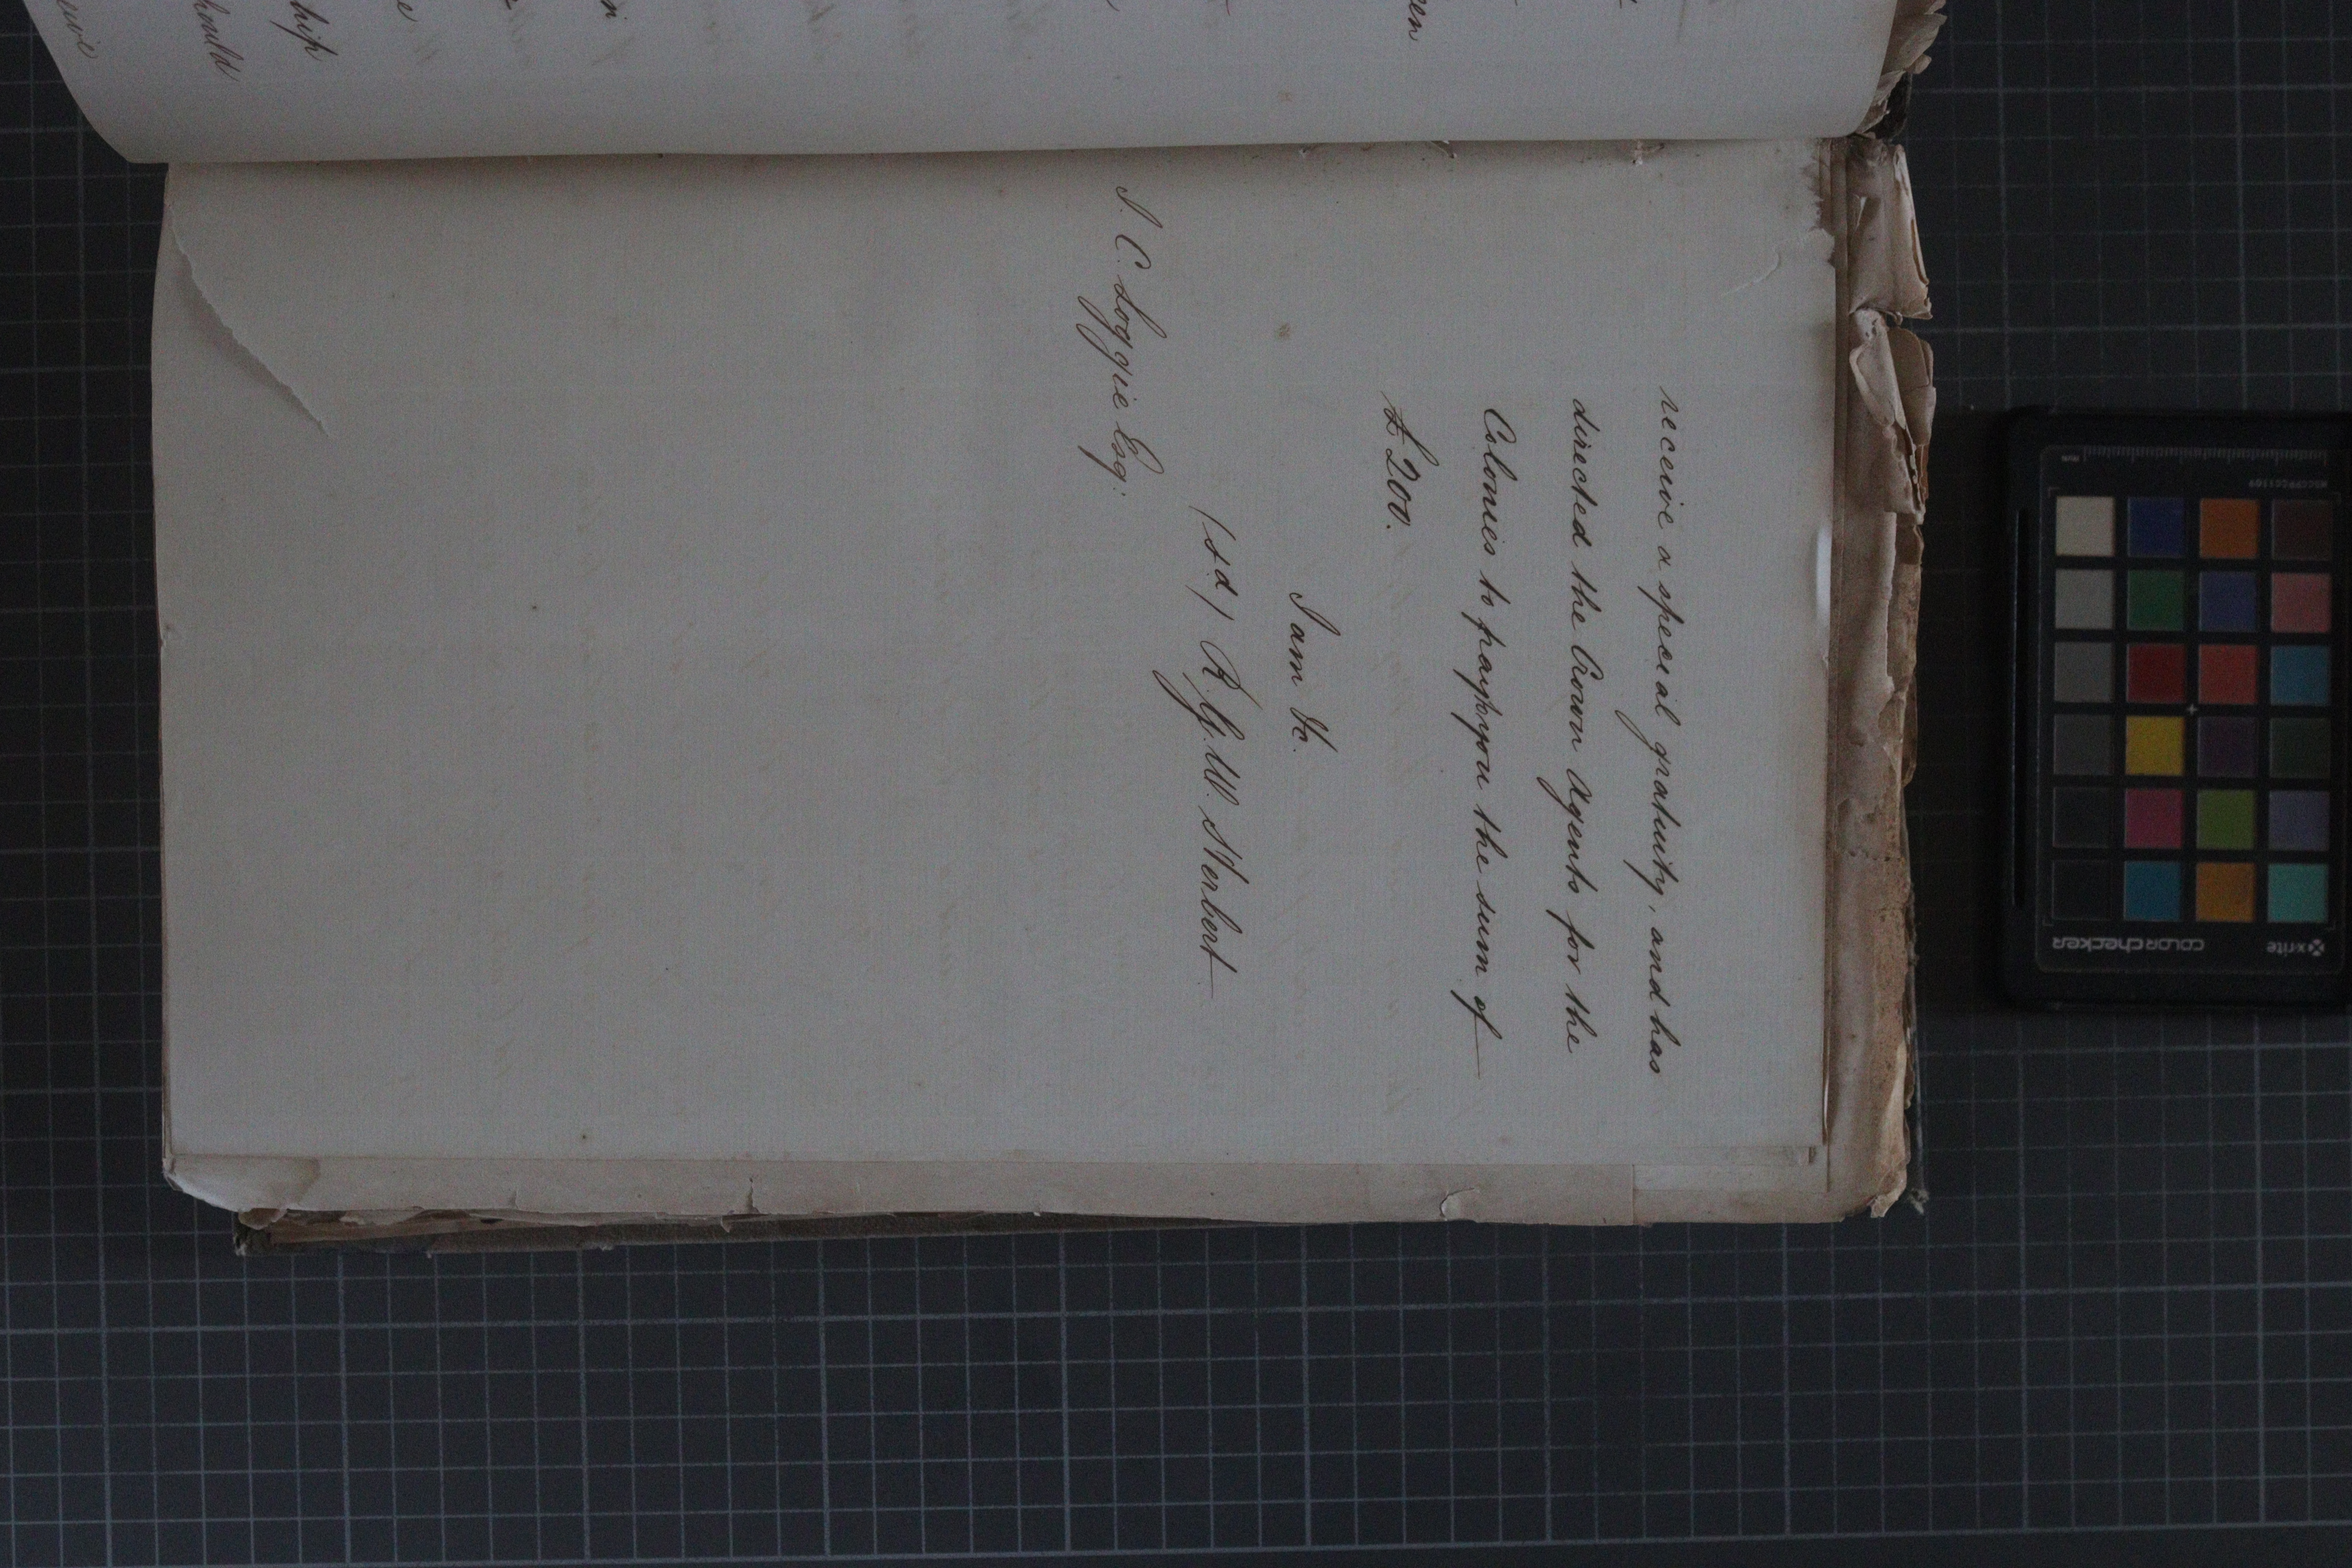 receive a special gratuity, and has
directed the Crown Agents for the
Colonies to pay to you the sum of
£200.
I am &c.
(sd) R.G.W. Herbert
J. C. Loggie Esq:
hould
hip
e
en
x-rite
colorchecker